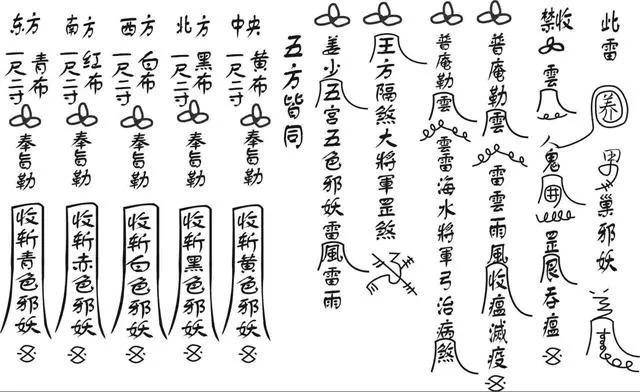 东方
青布
一尺二寸
奉旨勒
收斩青色邪妖
南方
红布
一尺二寸
奉旨勒
收斩赤色邪妖
西方
白布
一尺二寸
奉旨勒
收斩白色邪妖
北方
黑布
一尺二寸
奉旨勒
收斩黑色邪妖
中央
黄布
一尺二寸
奉旨勒
收斩黄色邪妖
五方皆同
姜少五宫五色邪妖雷風雷雨
王方隔煞大將軍罡煞
普庵勒雲雲雷海水將軍弓治病煞
普庵勒雲雷雲雨風收瘟滅疫
禁收雲人鬼罡吞瘟
此雷养巢邪妖